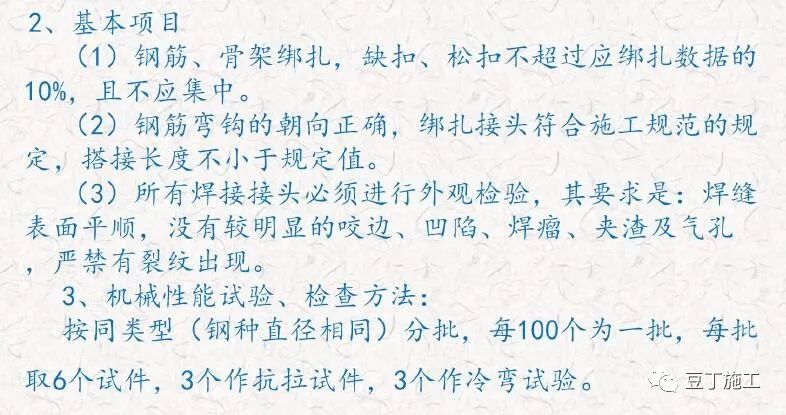 2、基本项目
（1）钢筋、骨架绑扎，缺扣、松扣不超过应绑扎数据的
10%，且不应集中。
（2）钢筋弯钩的朝向正确，绑扎接头符合施工规范的规
定，搭接长度不小于规定值。
（3）所有焊接接头必须进行外观检验，其要求是：焊缝
表面平顺，没有较明显的咬边、凹陷、焊瘤、夹渣及气孔
，严禁有裂纹出现。
3、机械性能试验、检查方法：
按同类型（钢种直径相同）分批，每100个为一批，每批
取6个试件，3个作抗拉试件，3个作冷弯试验。
豆丁施工